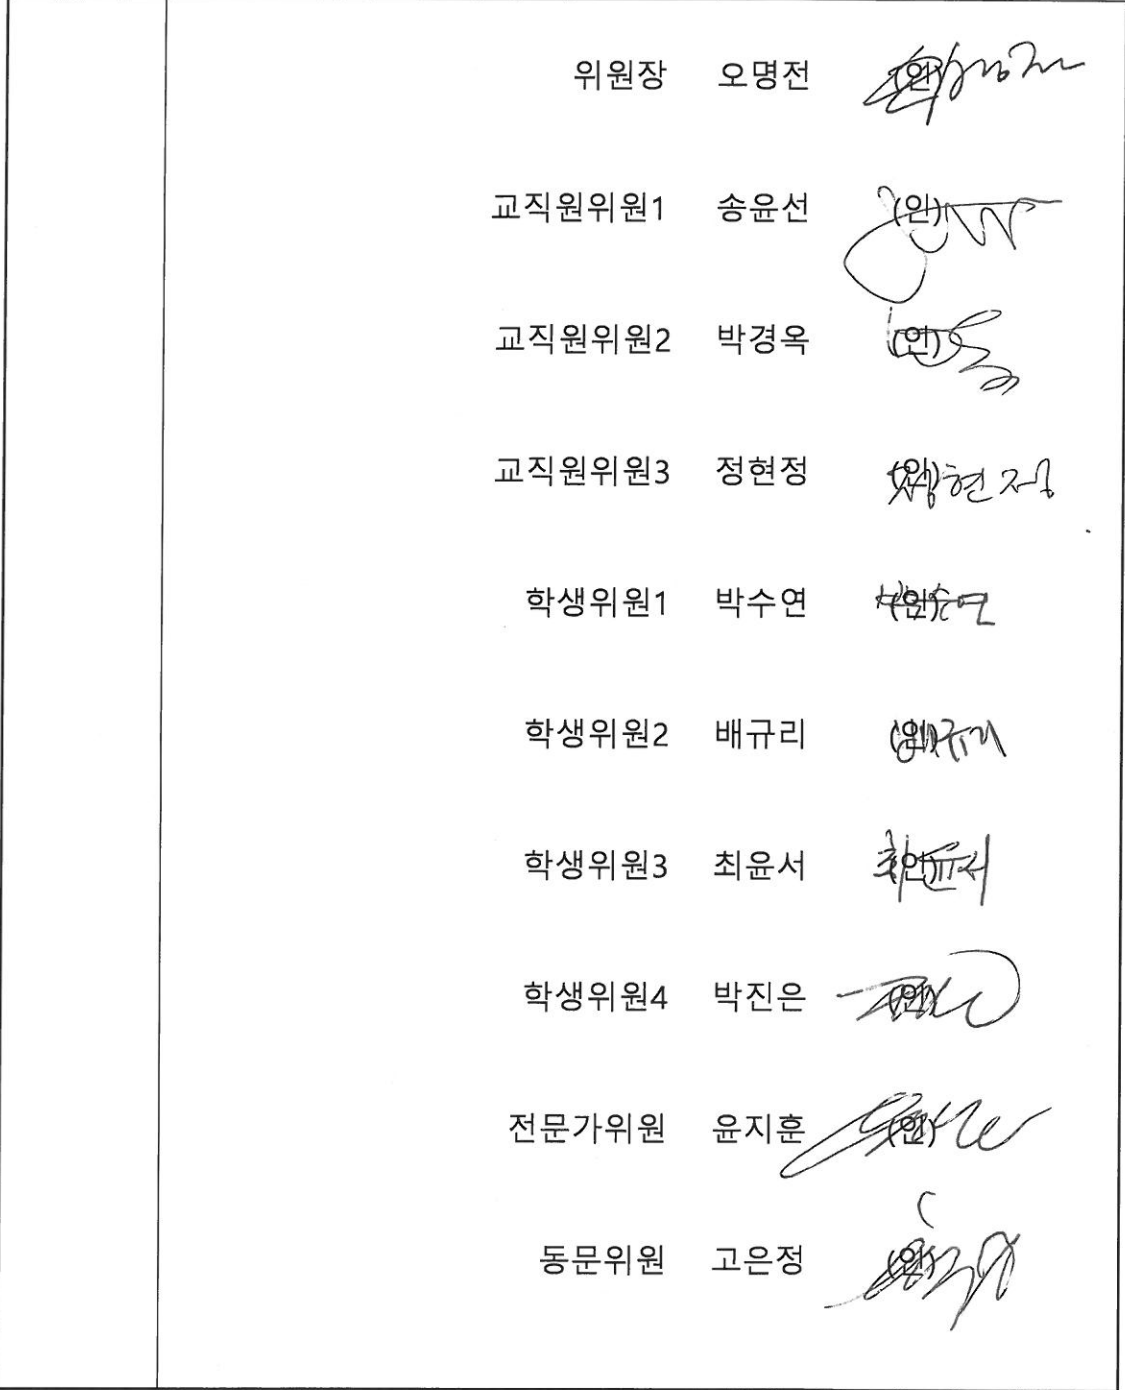 위원장 오명전 (인)
교직원위원1 송윤선 (인)
교직원위원2 박경옥 (인)
교직원위원3 정현정 (인) 정현정
학생위원1 박수연 (인) 박수연
학생위원2 배규리 (인) 배규리
학생위원3 최윤서 (인) 최윤서
학생위원4 박진은 (인)
전문가위원 윤지훈 (인)
동문위원 고은정 (인)